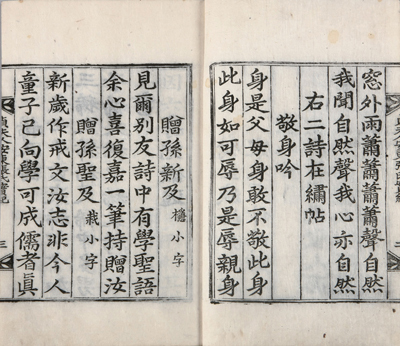 窓外雨蕭蕭蕭蕭聲自然
我聞自然聲我心亦自然
右二詩在繡帖
敬身吟
身是父母身敢不敬此身
此身如可辱乃是辱親身
贈孫新及 檥小字
見爾別友詩中有學聖語
余心喜復嘉一筆持贈汝
贈孫聖及 栽小字
新歲作戒文汝志非今人
童子已向學可成儒者眞
三